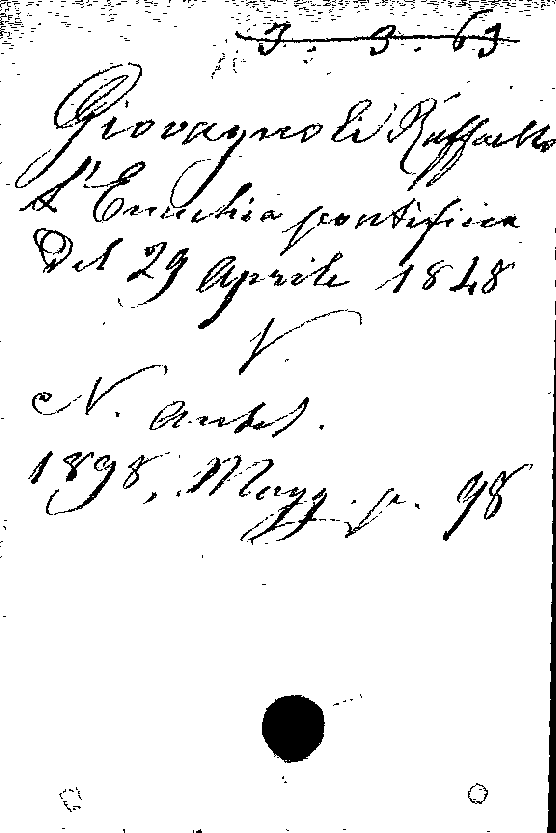 3. 3. 63
Giovagnoli Raffaello
L'Enciclica pontificia
del 29 Aprile 1848
V.
N. Antol.
1898, Magg. p. 98